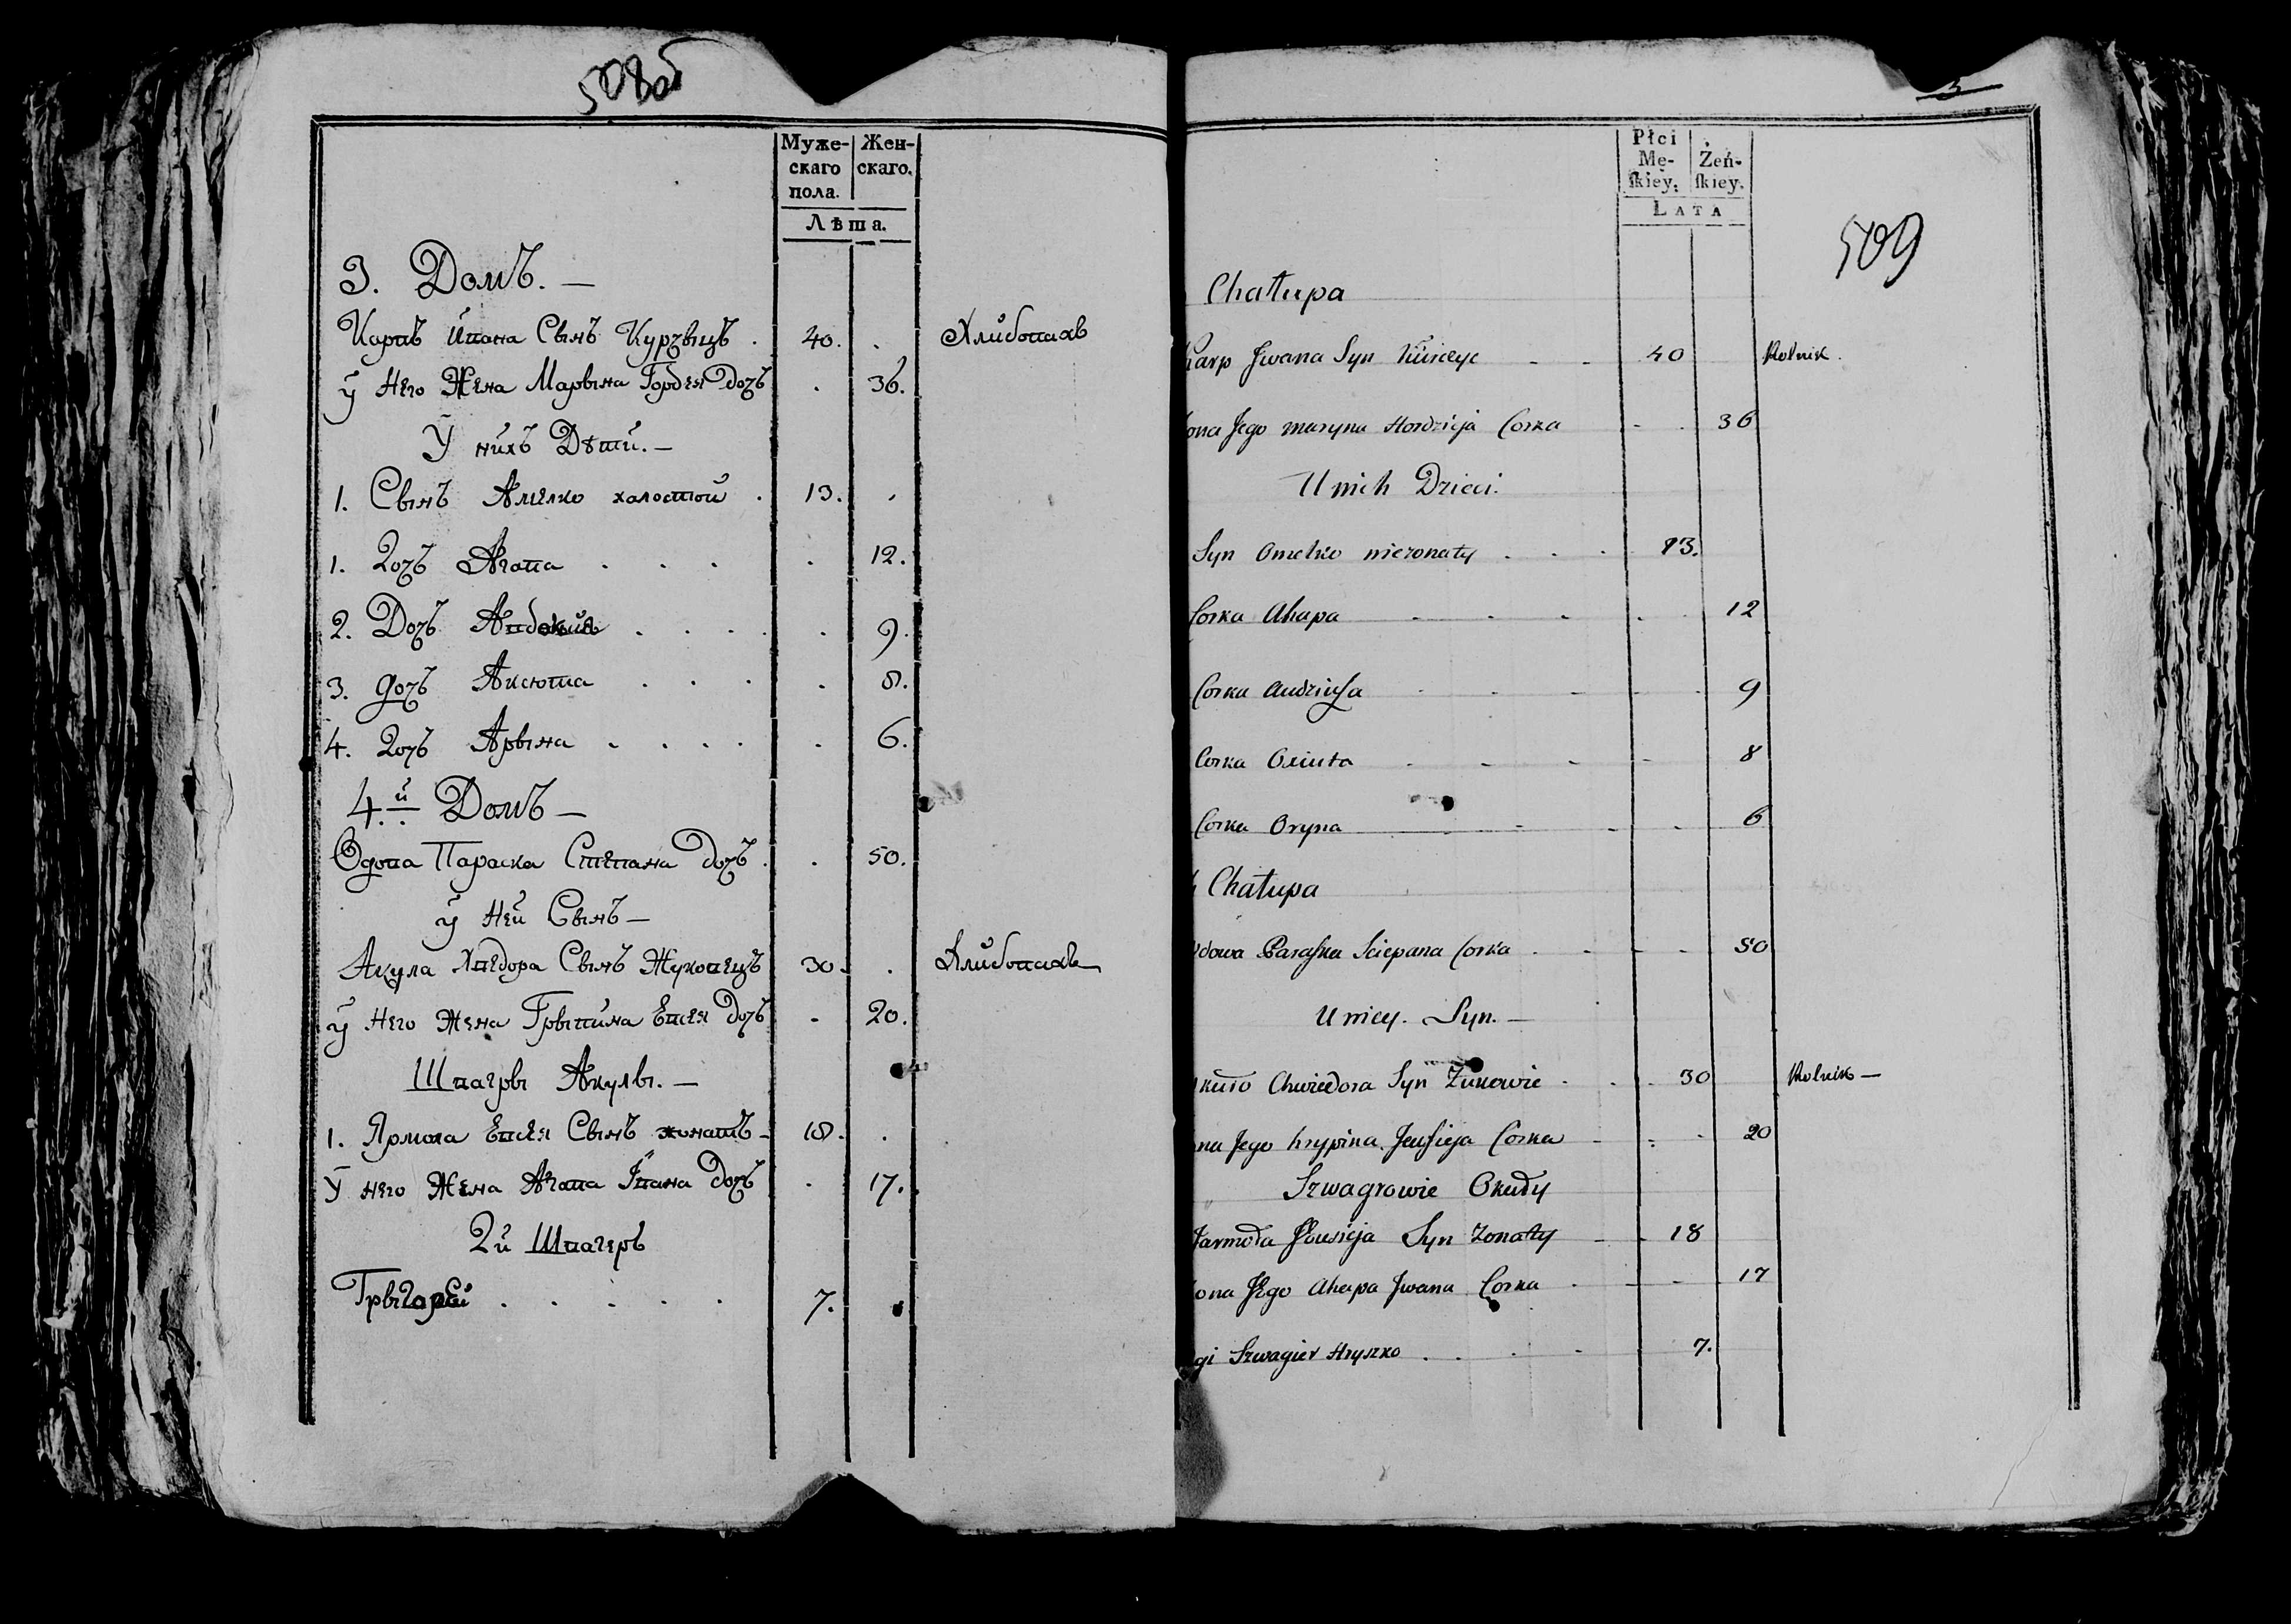 508об
Муже-
скаго
пола.
Жен-
скаго.
Лѣта.
3. Домъ. —
Карпъ Ивана Сынъ Курчыцъ . 40. . Хлибопахъ
у Него Жена Марына Гордея дочь . 36.
У нихъ Дѣти. —
1. Сынъ Амелко холостой . 13. .
1. Дочь Агапа . . . . 12.
2. Дочь Авдокия . . . . . 9.
3. дочь Аксюта . . . . 8.
4. Дочь Арына . . . . . 6.
4.й Домъ —
Одова Параска Степана дочь . . 50.
у Ней Сынъ —
Акула Хведора Сынъ Жуковецъ 30. . Хлибопахъ
у Него Жена Грыпина Евсея дочь . 20.
Швагры Акулы. —
1. Ярмола Евсея Сынъ жонатъ - 18. .
У него Жена Агапа Iвана дочь . 17.
2й Швагеръ
Грыгорей . . . . . 7. .
5
Płci
Mę-
ſkiey.
Żeń-
ſkiey.
LATA
509
Chałupa
Karp Jwana Syn Kurczyc - - 40 Rolnik.
ona Jego Maryna Hordzieja Corka - . 36
U nich Dzieci.
Syn Omelko niezonaty . . . 13.
Corka Ahapa - - - . . 12
Corka Audziuſa - - - - . 9
Corka Oxiuta - - - - 8
Corka Oryna - . - 6
Chałupa
dowa Paraſka Sciepana Corka . - - 50
U niey. Syn. —
kuło Chwiedora Syn Zukowic . . . 30 Rolnik —
na Jego hrypina Jeuſieja Corka - . - 20
Szwagrowie Okuły
Jarmoła Jeusieja Syn Zonaty - - 18
ona Jego Ahapa Jwana Corka . - - 17
gi Szwagier Hryszko . . . . 7.